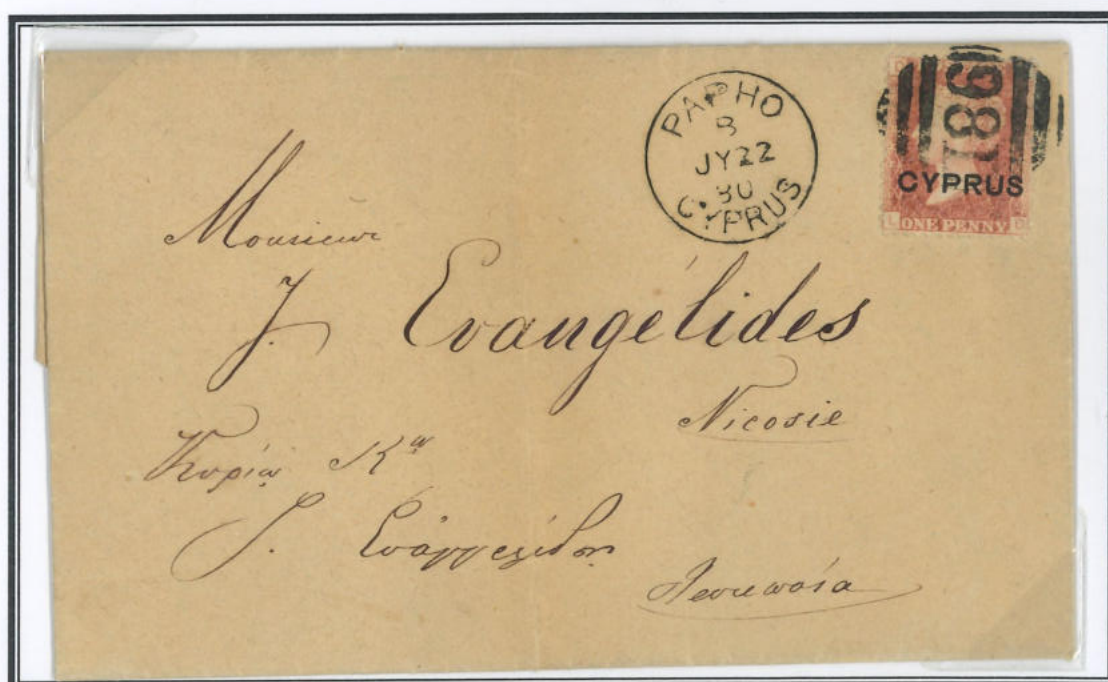 PAPHO
B
JY 22
80
CYPRUS
981
CYPRUS
L ONE PENNY
Monsieur
J. Evangélides
Nicosie
Κυρίῳ
Εὐαγγελίδῃ
Λευκωσία